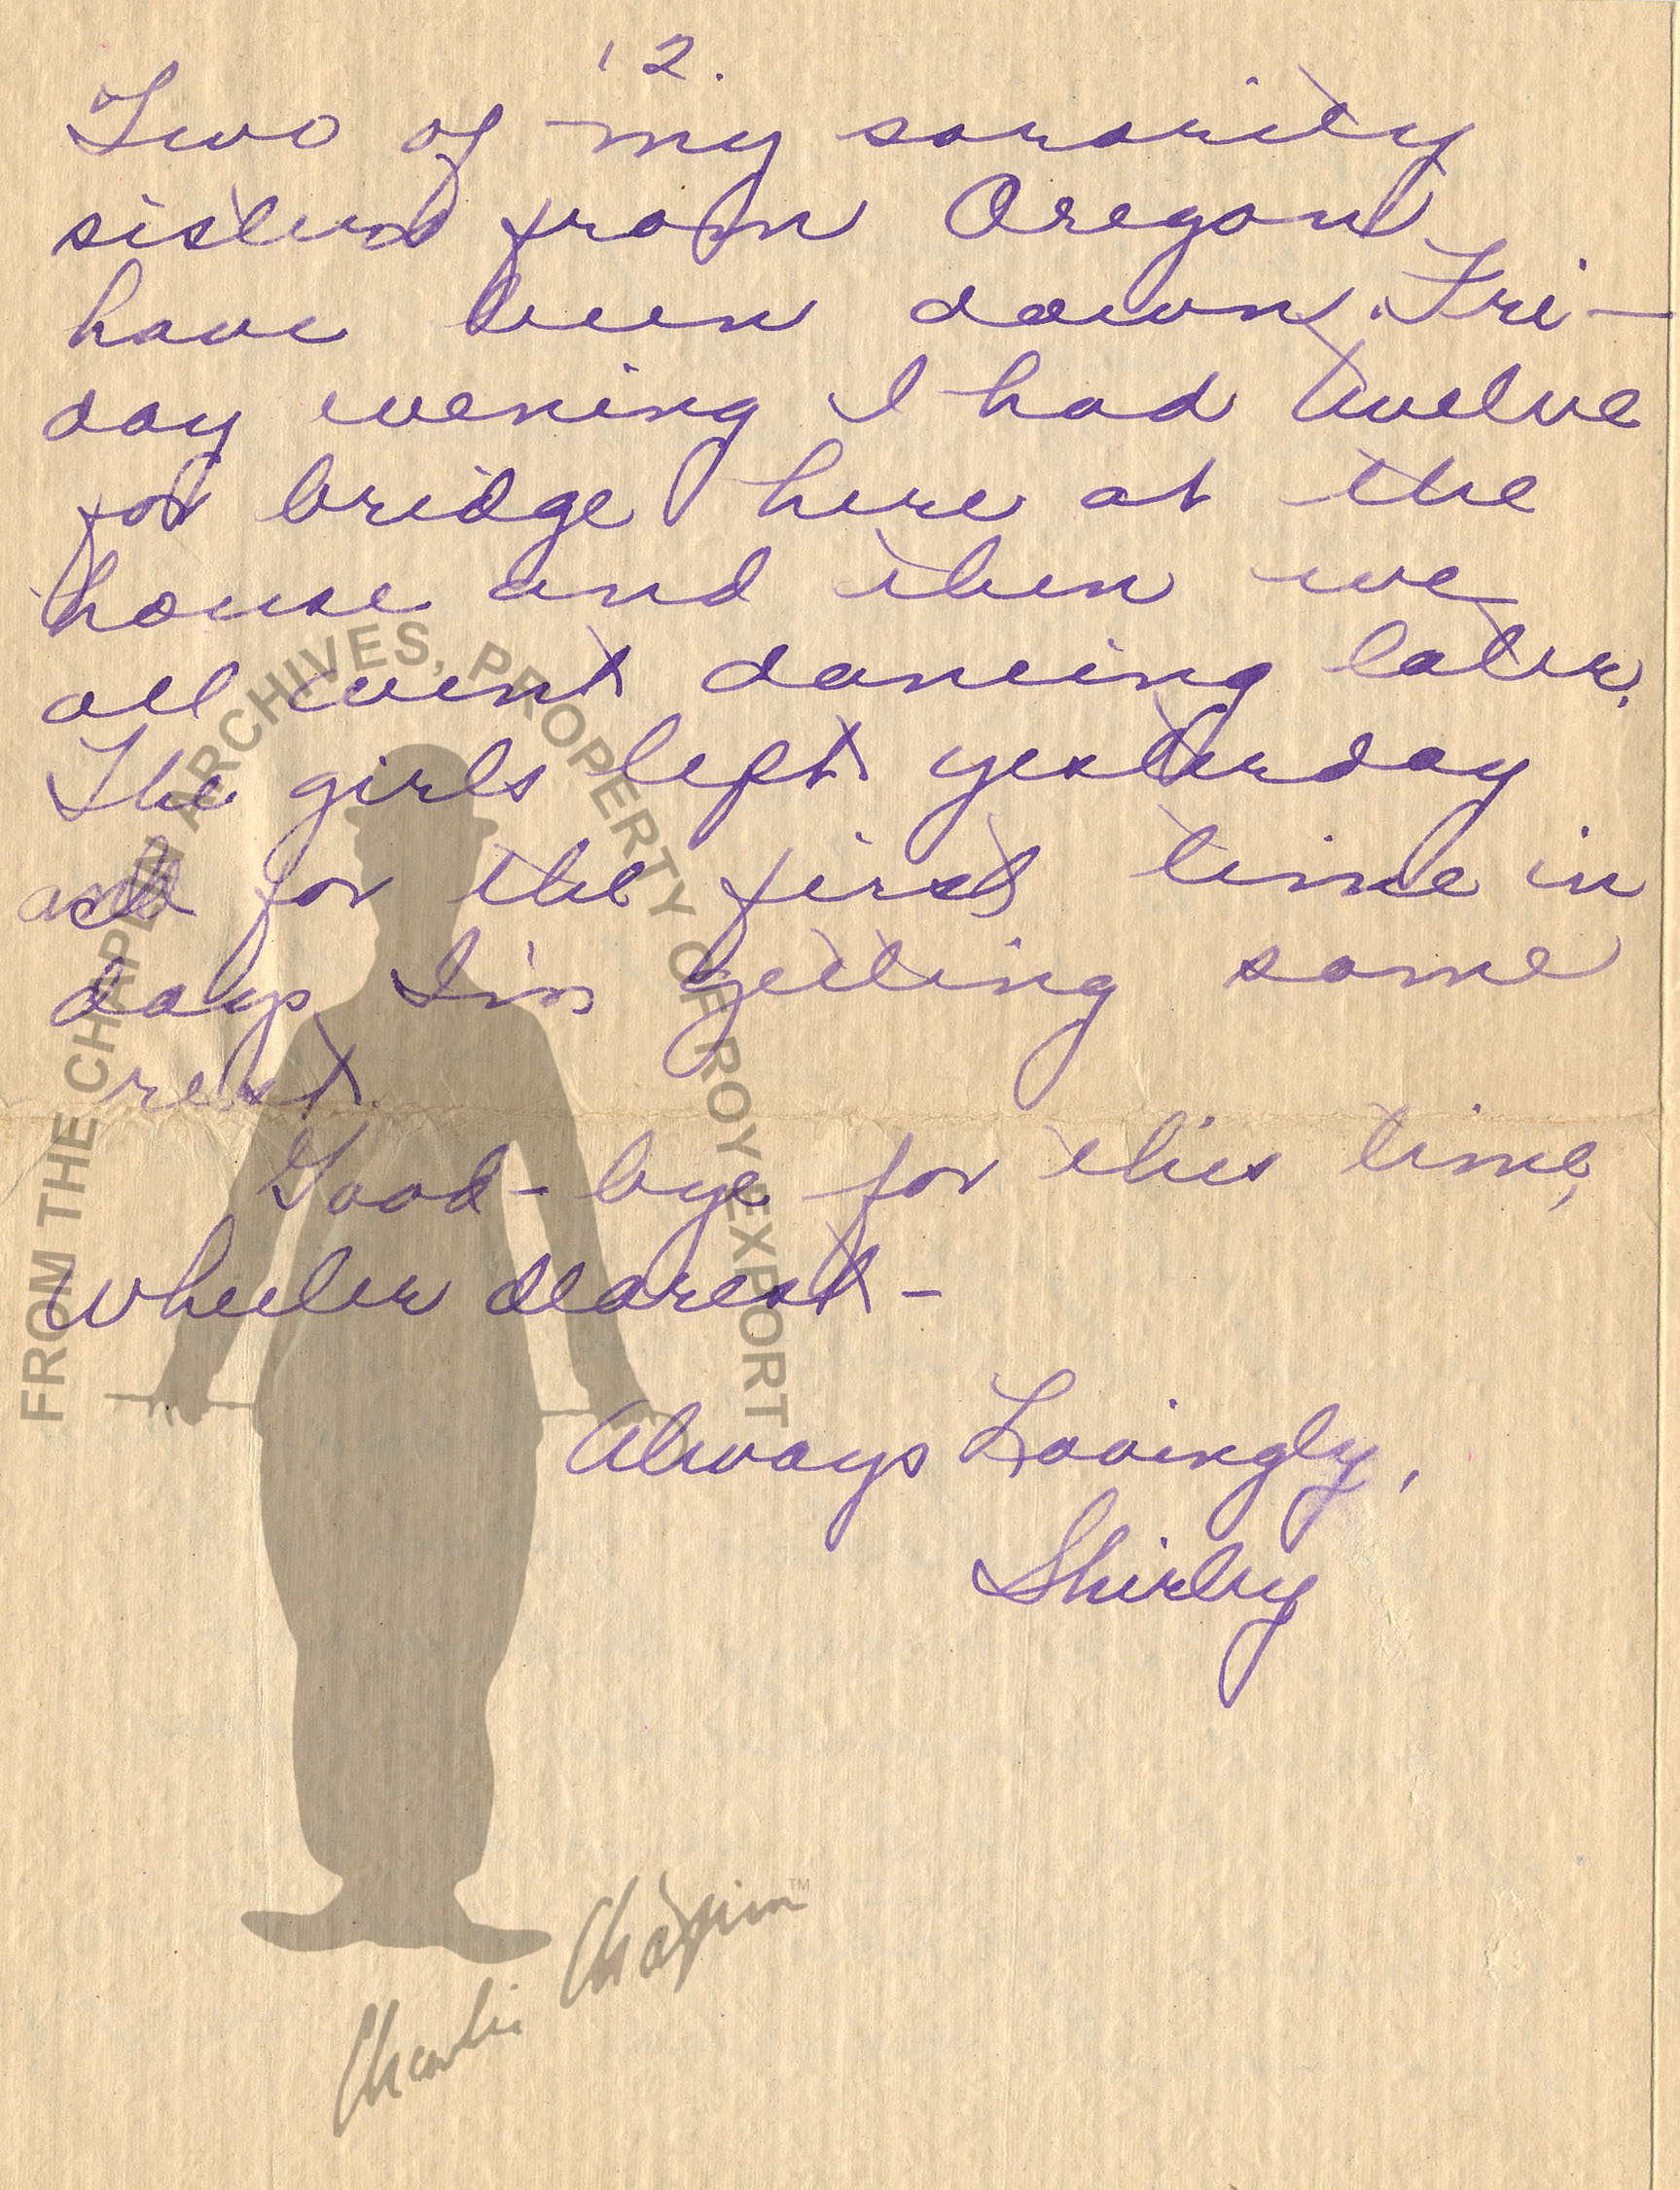 12.
Two of my sorority
sisters from Oregon
have been down. Fri-
day evening I had twelve
for bridge here at the
house and then we
all went dancing later.
The girls left yesterday
and for the first time in
days I'm getting some
rest.
Good-bye for this time,
Wheeler dearest-
Always Lovingly,
Shirley
FROM THE CHAPLIN ARCHIVES, PROPERTY OF ROY EXPORT
Charlie Chaplin™